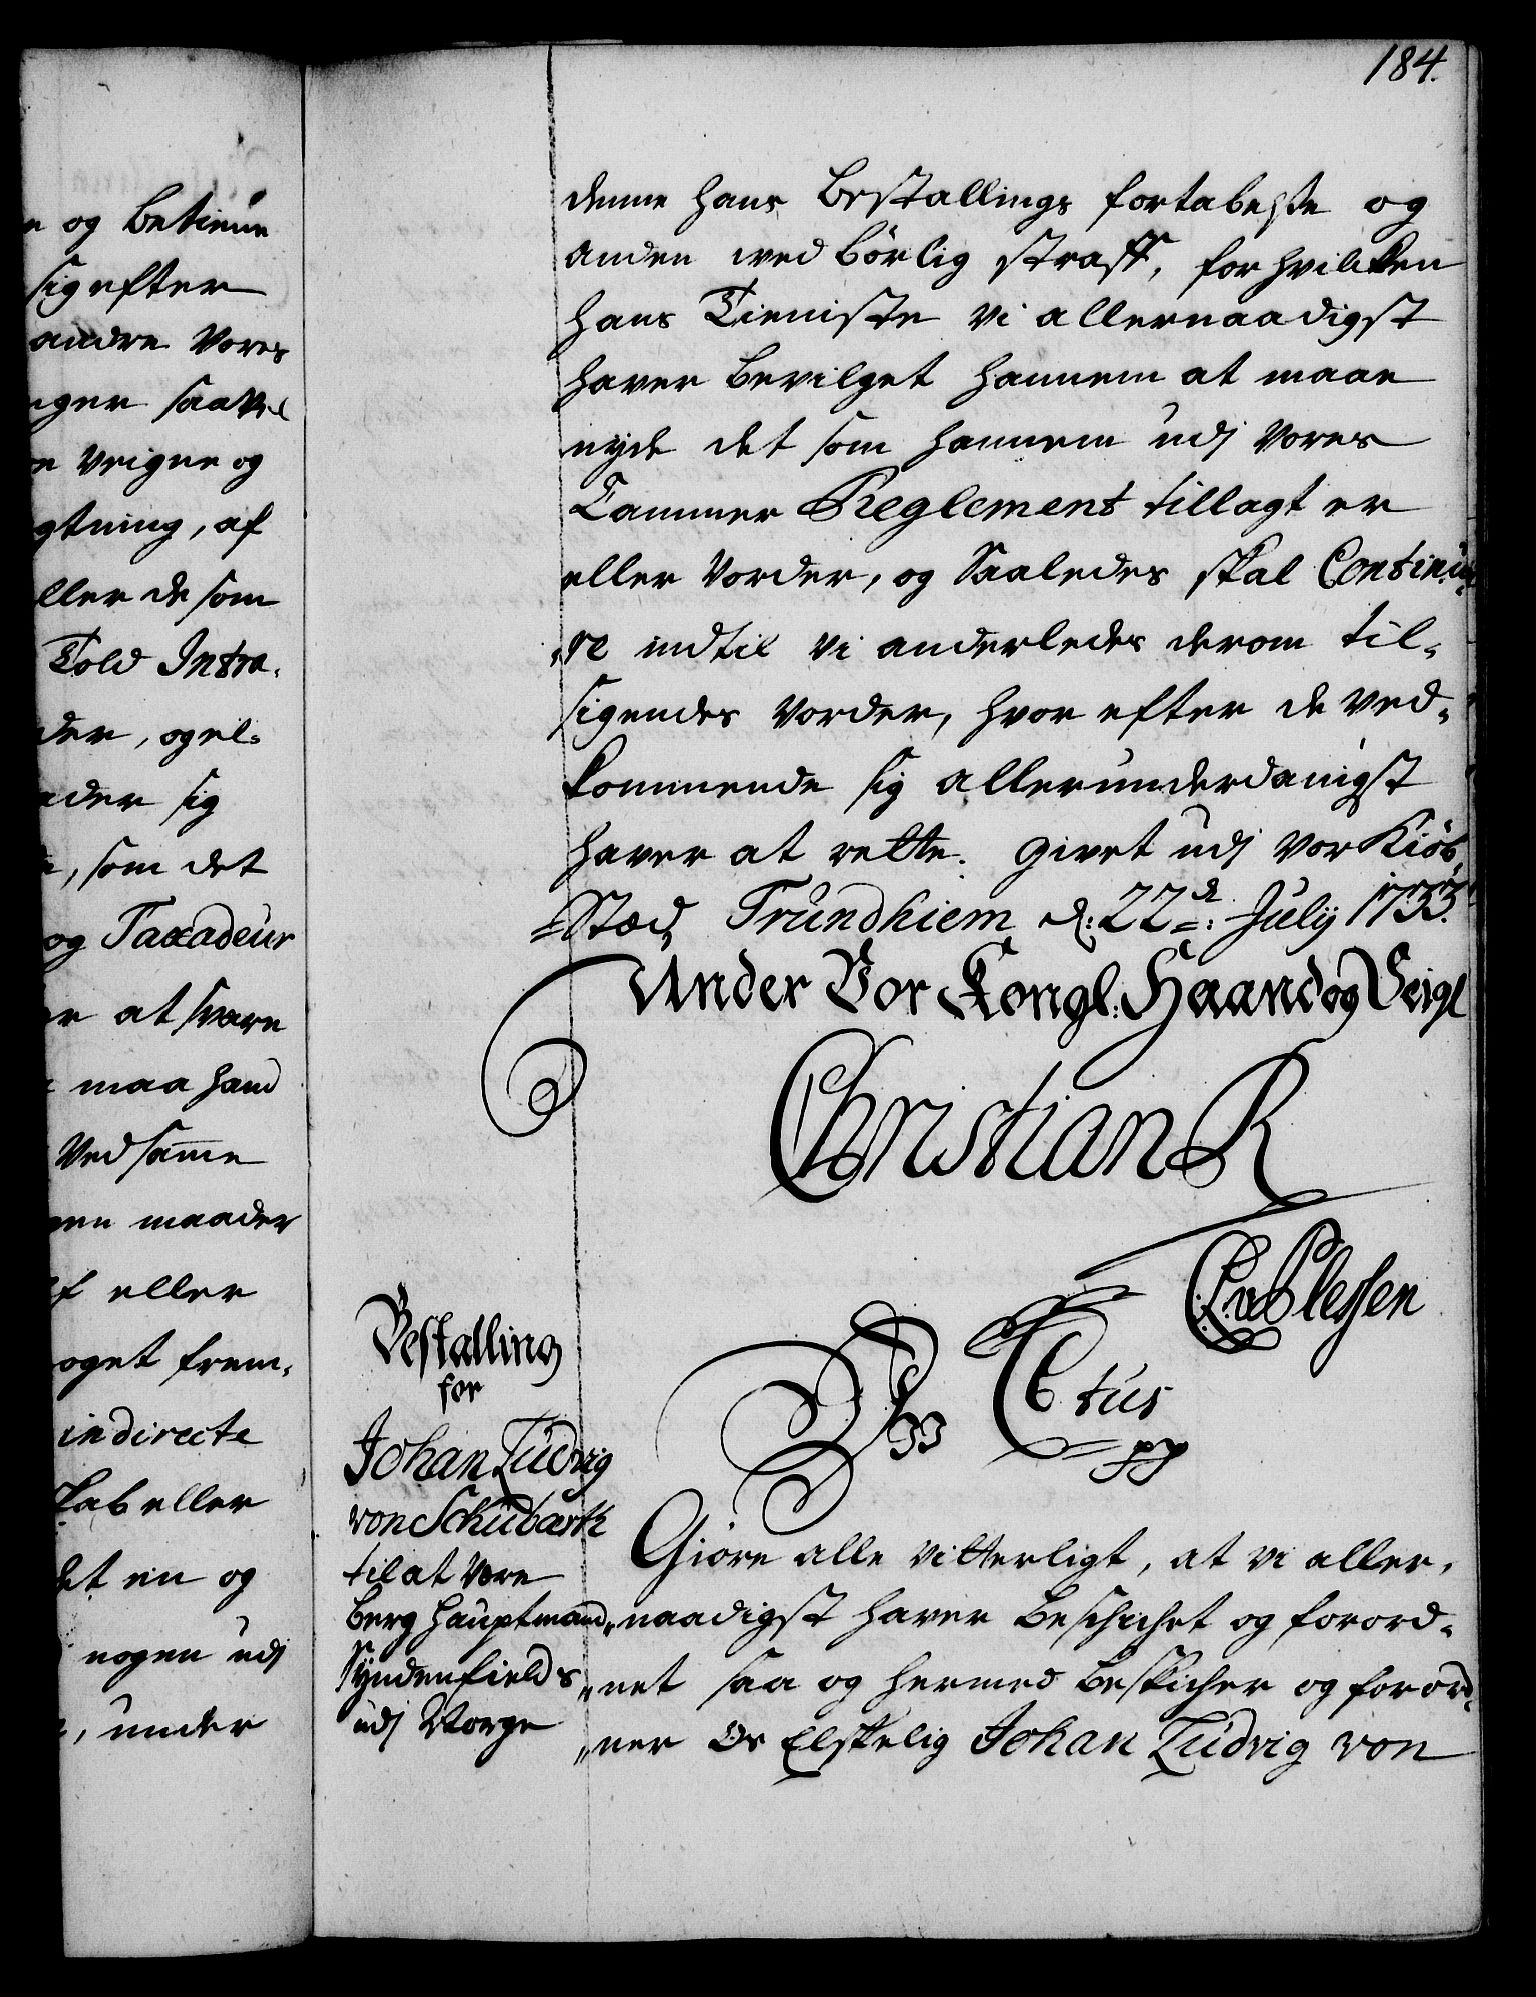 184.
e og betiene
sig efter
andre Vores
nger saavel
e Vrigne og
gtning, af
ller de som
Told Intra-
der, og el-
ader sig
, som det
og Taxadeur
er at svare
maa hand
Ved samme
gen maader
f eller
oget frem-
indirecte
skab eller
det en og
nogen udj
, under
denne hans Bestallings fortabelse og
anden ved börlig straff, for hvilken
hans Tieniste vi allernaadigst
haver bevilget hannem at maae
nyde det som hannem udj Vores
Cammer Reglement tillagt er
eller Vorder, og Saaledes skal Continue-
re indtil vi anderledes derom til-
sigendes Vorder, hvor efter de ved-
kommende sig allerunderdanigst
haver at rette. Givet udj Vor Kiöb
=Stæd Trundhiem d: 22de: July 1733.
Under Vor Kongl: Haand og Seigl
Christian R
CAvPlessen
Bestalling
for
Johan Ludvig
von Schubarth
til at Være
Berg Hauptmand
Syndenfields
udj Norge
Wy C 6tus
pp
Giöre alle vitterligt, at vi aller-
naadigst haver beschichet og forord-
net saa og hermed beskicher og forord-
ner Os Elskelig Johan Ludvig von